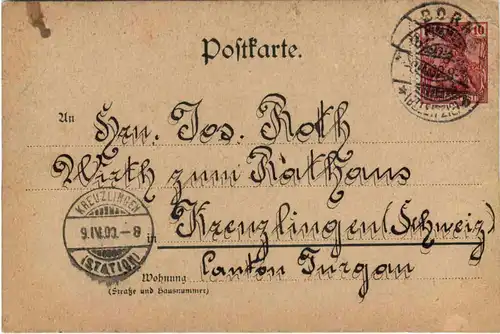 BORK
10
Postkarte.
An
Hrn. Jos. Roth
Wirth zum Rathaus
KREUZLINGEN
9.IV.00.-8
(STATION)
in Kreuzlingen (Schweiz)
Canton Turgau
Wohnung
(Straße und Hausnummer)